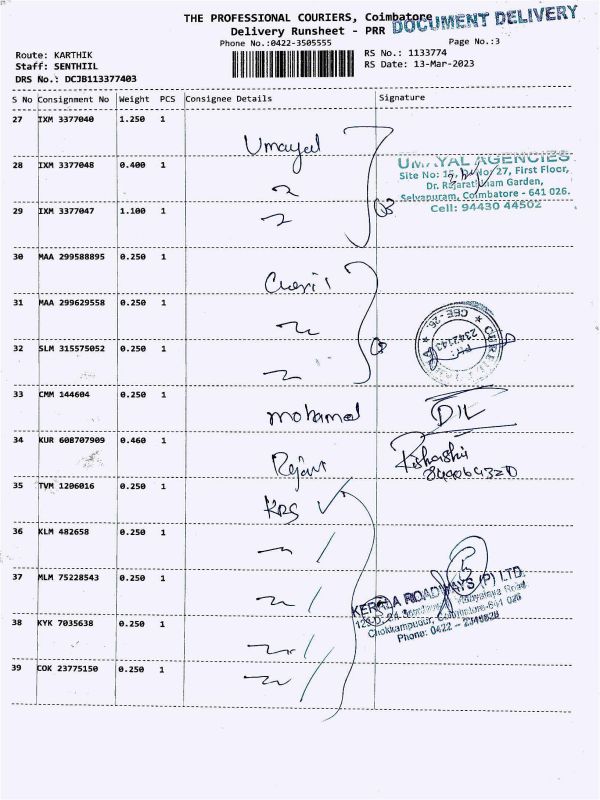 THE PROFESSIONAL COURIERS, Coimbatore
DOCUMENT DELIVERY
Delivery Runsheet - PRR
Phone No.:0422-3505555
Page No.:3
Route: KARTHIK
RS No.: 1133774
Staff: SENTHIIL
RS Date: 13-Mar-2023
DRS No.: DCJB113377403
S No Consignment No Weight PCS Consignee Details Signature
27 IXM 3377040 1.250 1
Umayal
28 IXM 3377048 0.400 1
UMAYAL AGENCIES
Site No: 15, 27, First Floor,
Dr. Rajarathnam Garden,
Selvapuram, Coimbatore - 641 026.
Cell: 94430 44502
29 IXM 3377047 1.100 1
30 MAA 299588895 0.250 1
31 MAA 299629558 0.250 1
CBE-26.
2342143
32 SLM 315575052 0.250 1
33 CMM 144604 0.250 1
mohamed
34 KUR 608707909 0.460 1
35 TVM 1206016 0.250 1
KRS
36 KLM 482658 0.250 1
37 MLM 75228543 0.250 1
KERALA ROADWAYS (P) LTD.
Vidyalaya Road
Chokkampudur, Coimbatore-641 026
Phone: 0422 - 2349828
38 KYK 7035638 0.250 1
39 COK 23775150 0.250 1